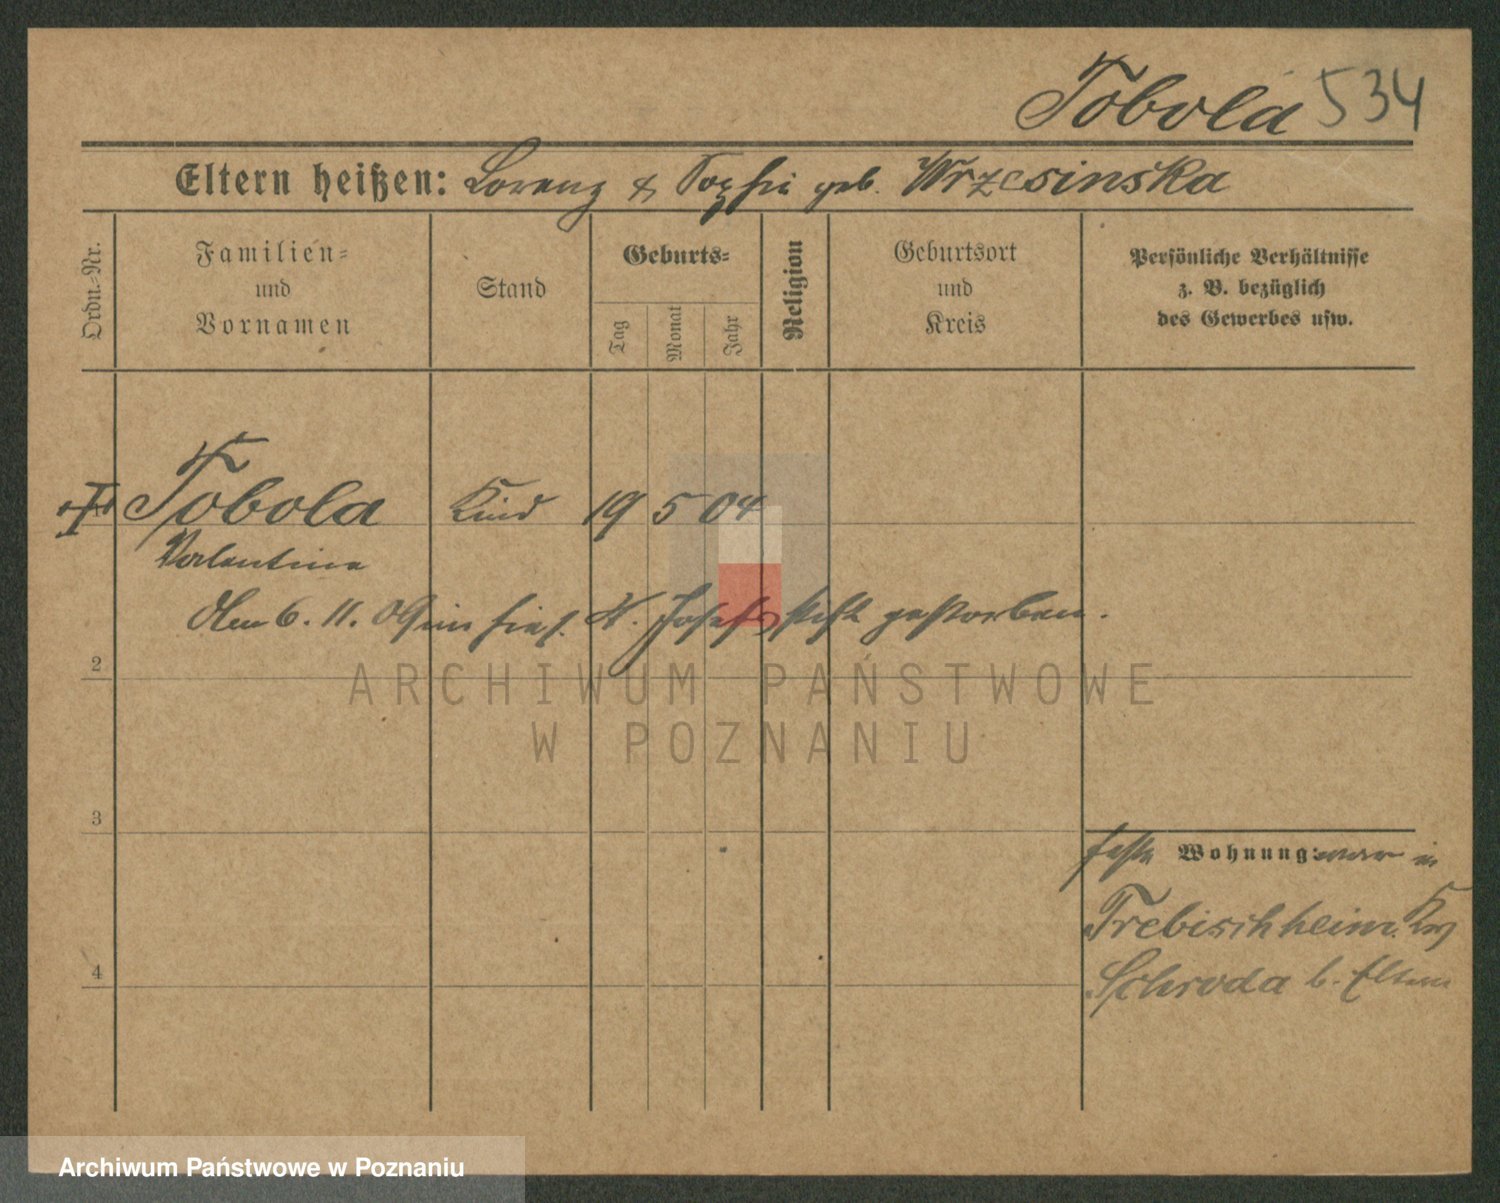 Tobola 534
Eltern heißen: Lorenz & Sophie geb. Wrzesinska
Ordn.-Nr.
Familien-
und
Vornamen
Stand
Geburts-
Tag
Monat
Jahr
Religion
Geburtsort
und
Kreis
Persönliche Verhältnisse
z. B. bezüglich
des Gewerbes usw.
Tobola Kind 19 5 04
Valentine
Am 6. 11. 09 im hies. St. Josefsstift gestorben.
2
3
4
feste Wohnung: war in
Trebischheim Krs
Schroda b. Eltern
ARCHIWUM PAŃSTWOWE
W POZNANIU
Archiwum Państwowe w Poznaniu